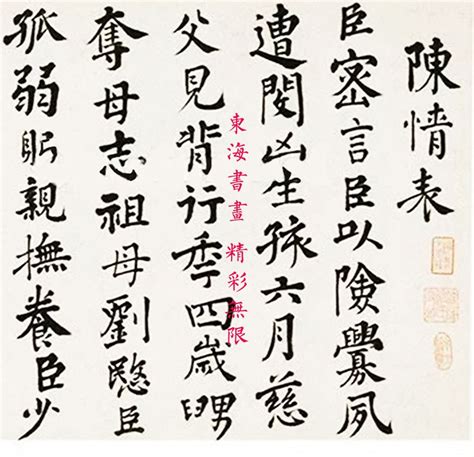 陳情表
臣密言臣以險釁夙
遭閔凶生孩六月慈
父見背行秊四歲舅
奪母志祖母劉愍臣
孤弱躬親撫養臣少
東海書畫 精彩無限